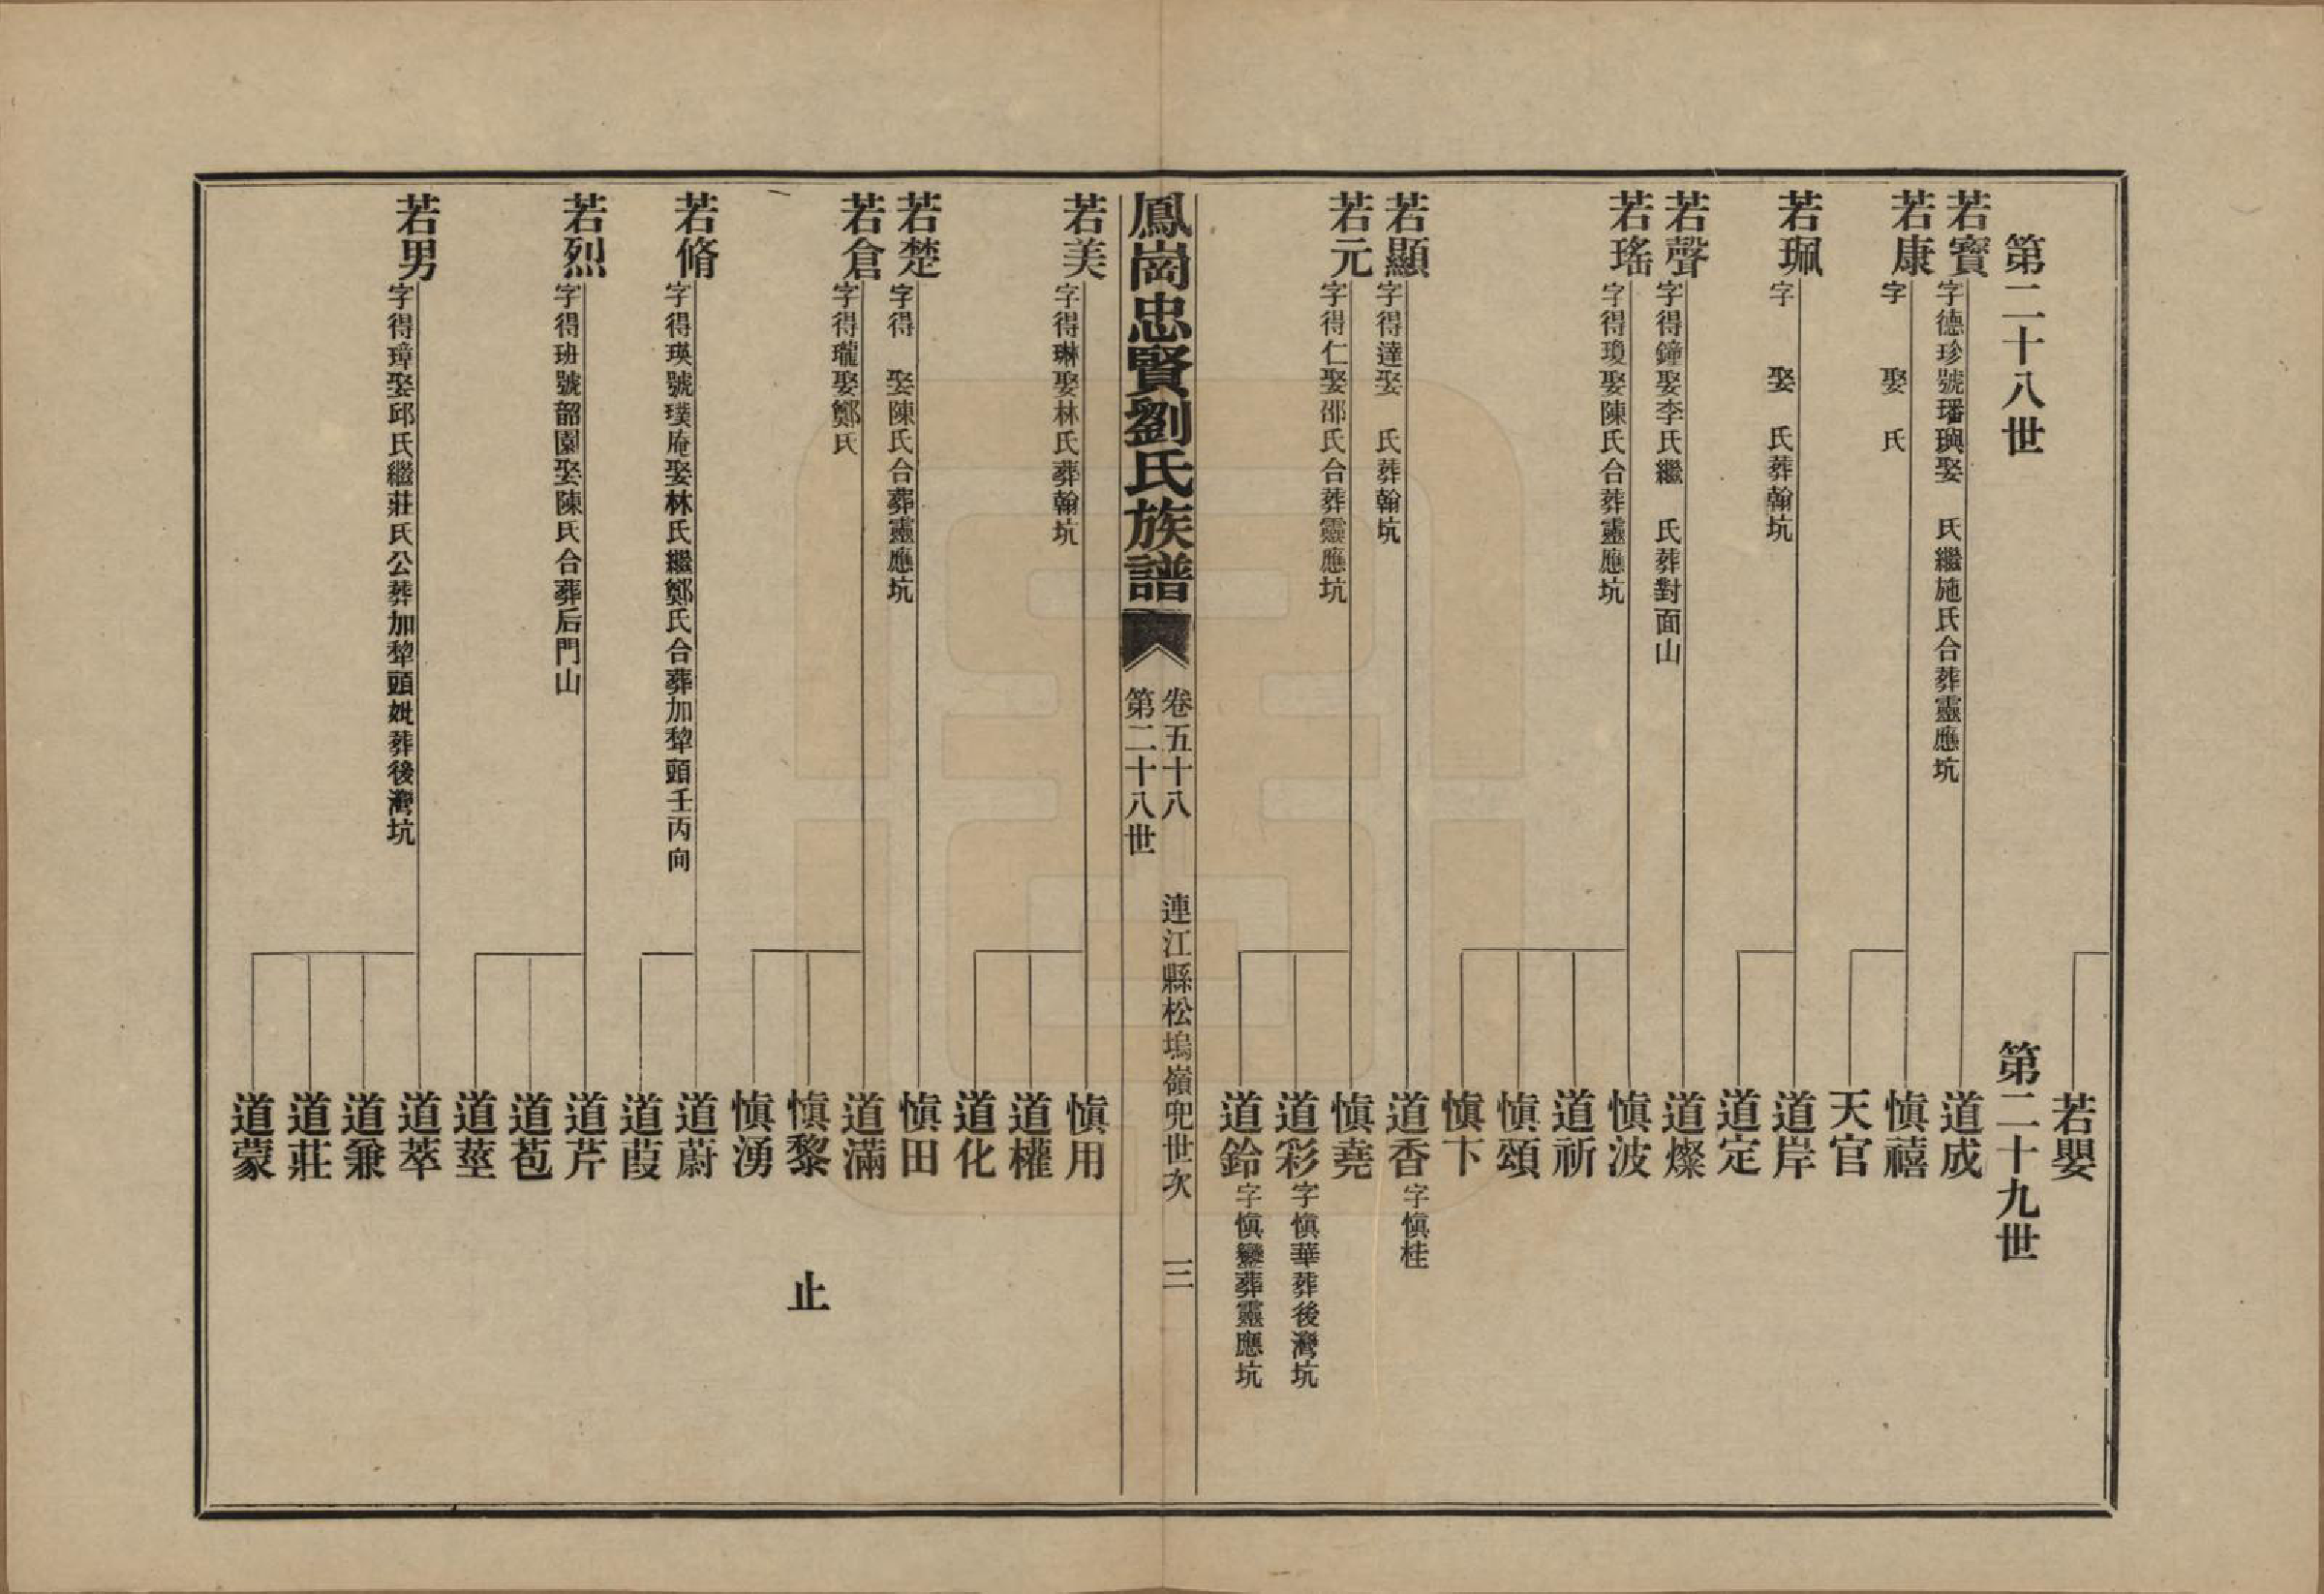 若嬰
第二十八世
第二十九世
若寶
字德珍號璠璵娶　氏繼施氏合葬靈應坑
道成
若康
字　娶　氏
慎禧
天官
若珮
字　娶　氏葬翰坑
道岸
道定
若聲
字得鐘娶李氏繼　氏葬對面山
道燦
若瑤
字得瓊娶陳氏合葬靈應坑
慎波
道祈
慎頌
慎卞
若顯
字得達娶　氏葬翰坑
道香
字慎桂
若元
字得仁娶邵氏合葬靈應坑
慎堯
道彩
字慎華葬後灣坑
道鈴
字慎鑾葬靈應坑
鳳崗忠賢劉氏族譜
卷五十八
第二十八世
連江縣松塢嶺兜世次
三
若美
字得琳娶林氏葬翰坑
慎用
道權
道化
若楚
字得　娶陳氏合葬靈應坑
慎田
若倉
字得瓏娶鄭氏
道滿
慎黎
止
慎湧
若脩
字得瑛號璞庵娶林氏繼鄭氏合葬加犂頭壬丙向
道蔚
道葭
若烈
字得班號韶園娶陳氏合葬后門山
道芹
道苞
道莖
若男
字得璋娶邱氏繼莊氏公葬加犂頭妣葬後灣坑
道萃
道兼
道莊
道蒙